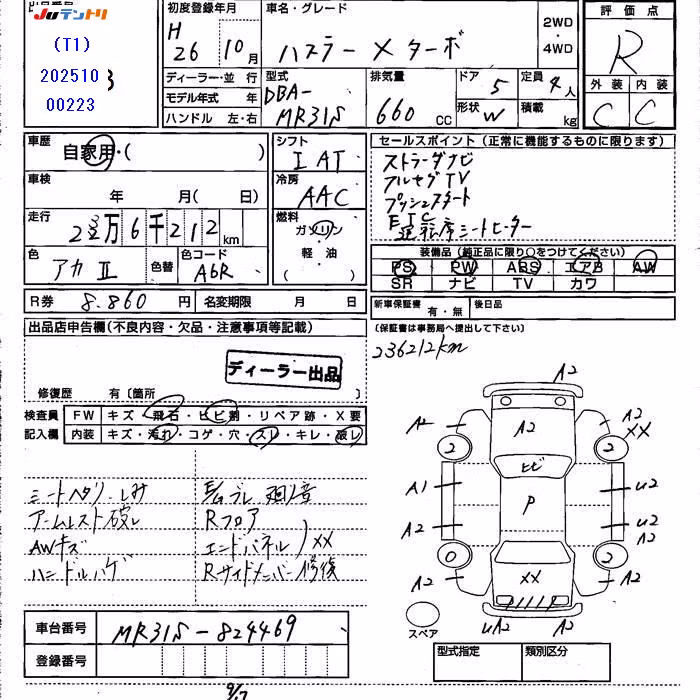 JUテントリ
(T1)
202510
00223
初度登録年月
H
26 10月
車名・グレード
ハスラー Xターボ
2WD
・
4WD
評価点
R
外装 内装
C C
ディーラー・並行
モデル年式 年
ハンドル 左・右
型式
DBA-
MR31S
排気量
660 CC
ドア 5
定員 4人
形状 W
積載 kg
車歴
自家用・( )
車検
年 月( 日)
走行
23万6千212km
色
アカⅡ
色替
色コード
A6R
シフト
IAT
冷房
AAC
燃料
ガソリン
軽油
( )
セールスポイント(正常に機能するものに限ります)
ストラーダナビ
フルセグTV
プッシュスタート
ETC
運転席シートヒーター
装備品(純正品に限り○をつけてください)
PS PW ABS エアB AW
SR ナビ TV カワ
R券 8.860円
名変期限 月 日
新車保証書 有・無
後日品
(保証書は事務局へ提出して下さい)
出品店申告欄(不良内容・欠品・注意事項等記載)
ディーラー出品
修復歴 有〔箇所 〕
236212km
検査員
記入欄
FW キズ・飛石・ヒビ割・リペア跡・X要
内装 キズ・汚れ・コゲ・穴・スレ・キレ・破レ
シートヘタリ・しみ
アームレスト破レ
AWキズ
ハンドルハゲ
Rフロア
エンドパネル XX
Rサイドメンバー修復
A2
A2 A2 A2 XX
2 2
ヒビ
A1 P U2
A2 U2
A2
0 2
A2 XX A2
UA2 A2
スペア
車台番号 MR31S-824469
登録番号
型式指定 類別区分